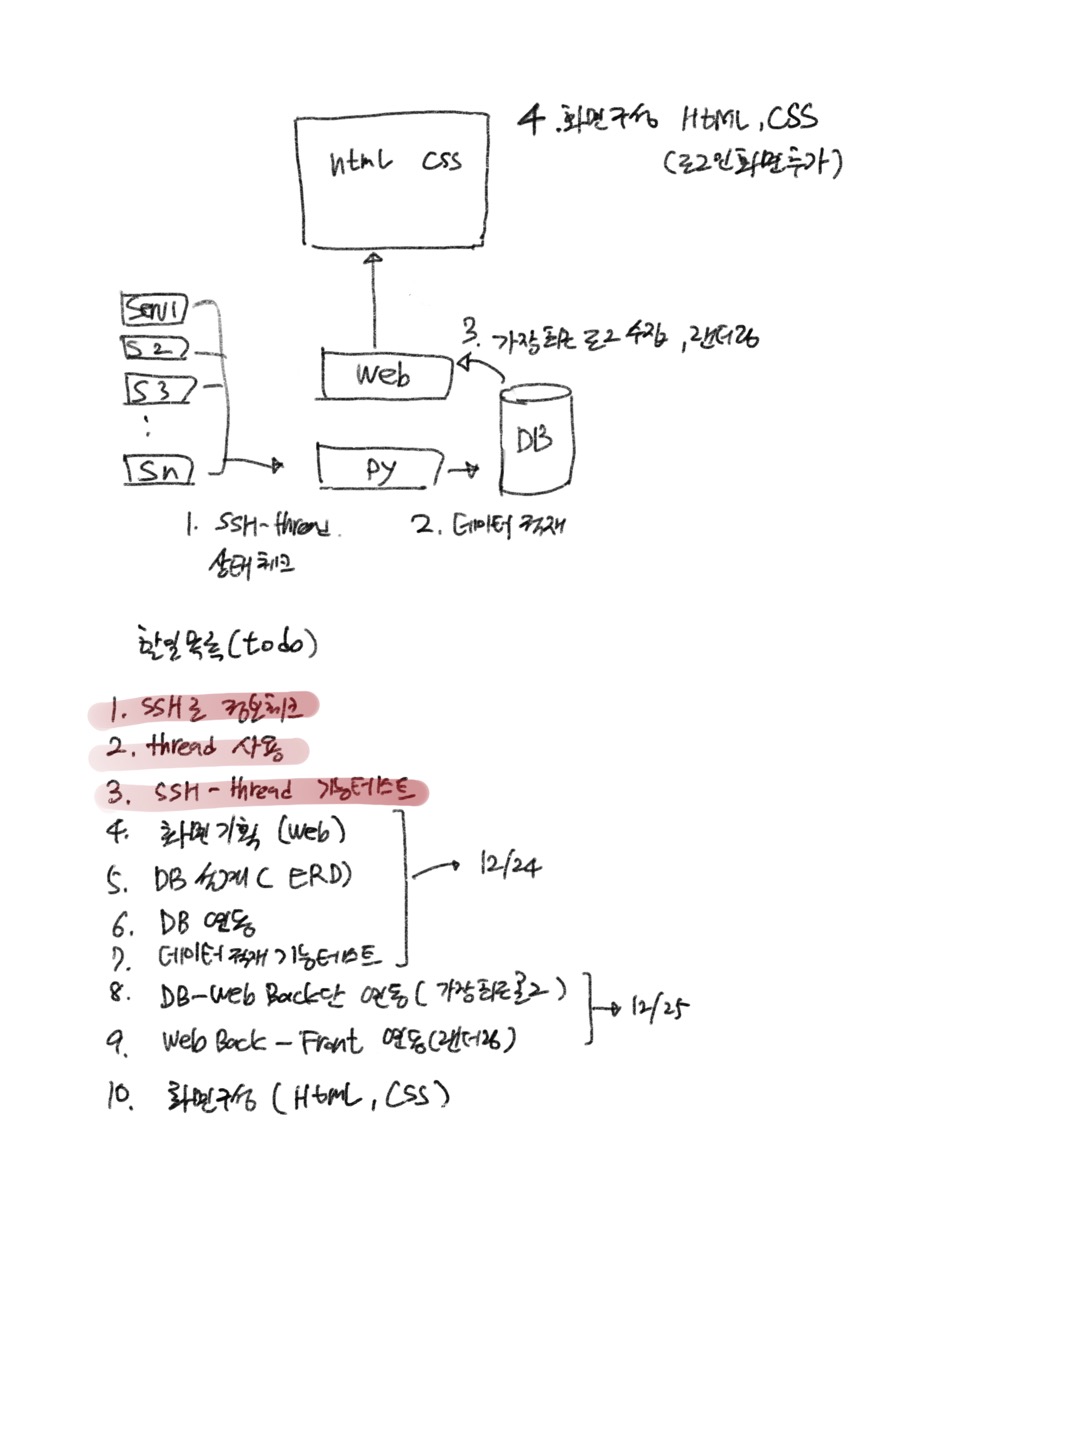 4. 화면구성 HtML, CSS
(로그인화면추가)
html CSS
Serv1
S2
S3
:
Sn
3. 가장최근 로그 수집, 랜더링
Web
DB
PY
1. SSH-thread
상태체크
2. 데이터 적재
할일목록(todo)
1. SSH로 정보체크
2. thread 사용
3. SSH-thread 기능테스트
4. 화면기획 (web)
5. DB 설계( ERD)
6. DB 연동
7. 데이터적재기능테스트
12/24
8. DB-Web Back단 연동(가장최근로그)
9. Web Back-Front 연동(랜더링)
12/25
10. 화면구성 (HtmL, CSS)